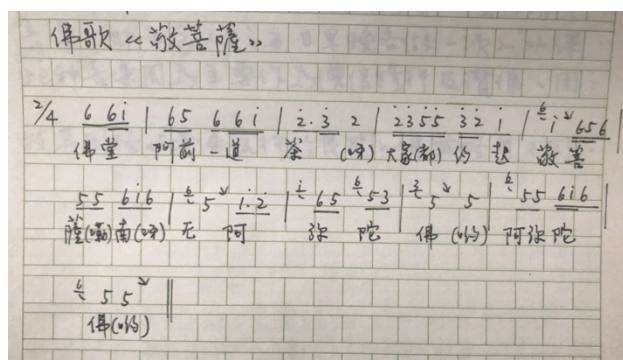 佛歌《敬菩薩》
2/4 6 6i | 65 6 6i | 2.3 2 | 2355 32 1 | 6 i 656 |
佛堂 阿前一道 茶 (呀) 大家(都) 约 起 敬 菩
55 6i6 | 6 5 1.2 | i 65 6 53 | 3 5 5 | 6 55 6i6 |
薩(嘞)南(呀) 无 阿 弥 陀 佛 (哟) 阿弥陀
6 55 ||
佛(哟)